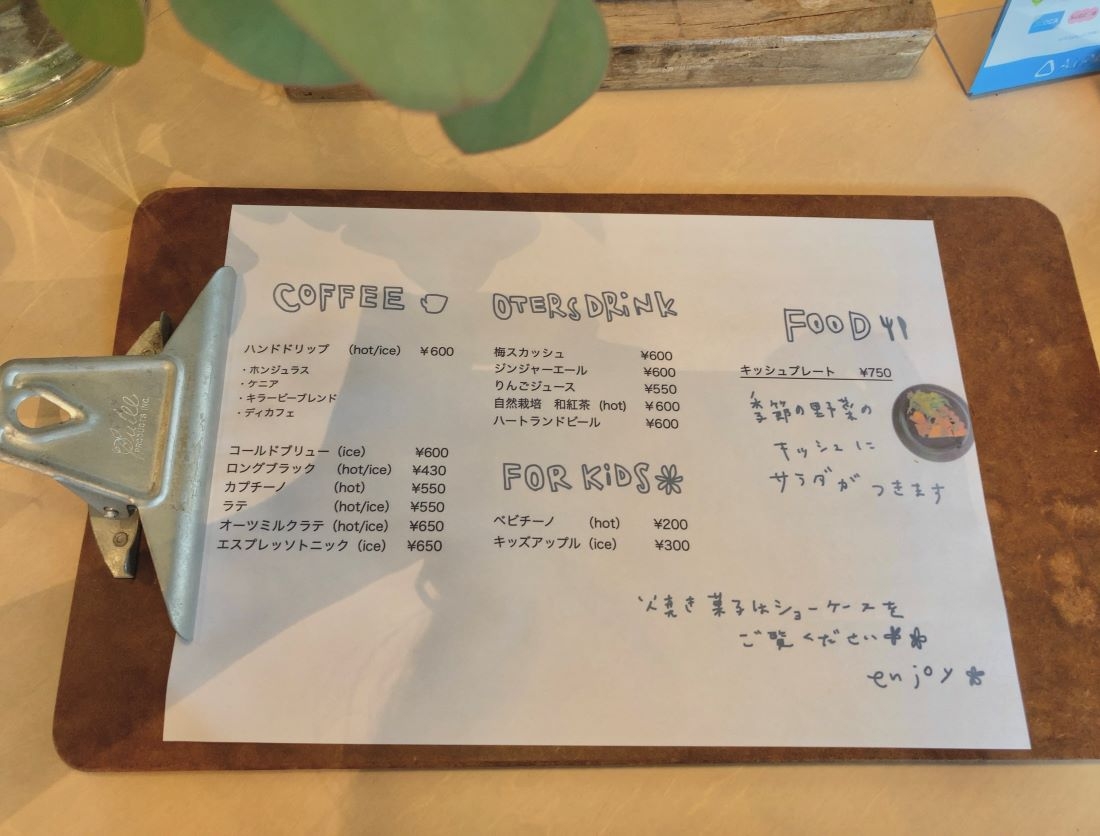 COFFEE
ハンドドリップ (hot/ice) ¥600
・ホンジュラス
・ケニア
・キラービーブレンド
・ディカフェ
コールドブリュー (ice) ¥600
ロングブラック (hot/ice) ¥430
カプチーノ (hot) ¥550
ラテ (hot/ice) ¥550
オーツミルクラテ (hot/ice) ¥650
エスプレッソトニック (ice) ¥650
OTERS DRiNK
梅スカッシュ ¥600
ジンジャーエール ¥600
りんごジュース ¥550
自然栽培 和紅茶 (hot) ¥600
ハートランドビール ¥600
FOR KiDS
ベビチーノ (hot) ¥200
キッズアップル (ice) ¥300
FOOD
キッシュプレート ¥750
季節の野菜の
キッシュに
サラダが つきます
焼き菓子はショーケースを
ご覧ください
enjoy
PRODUCTS INC.